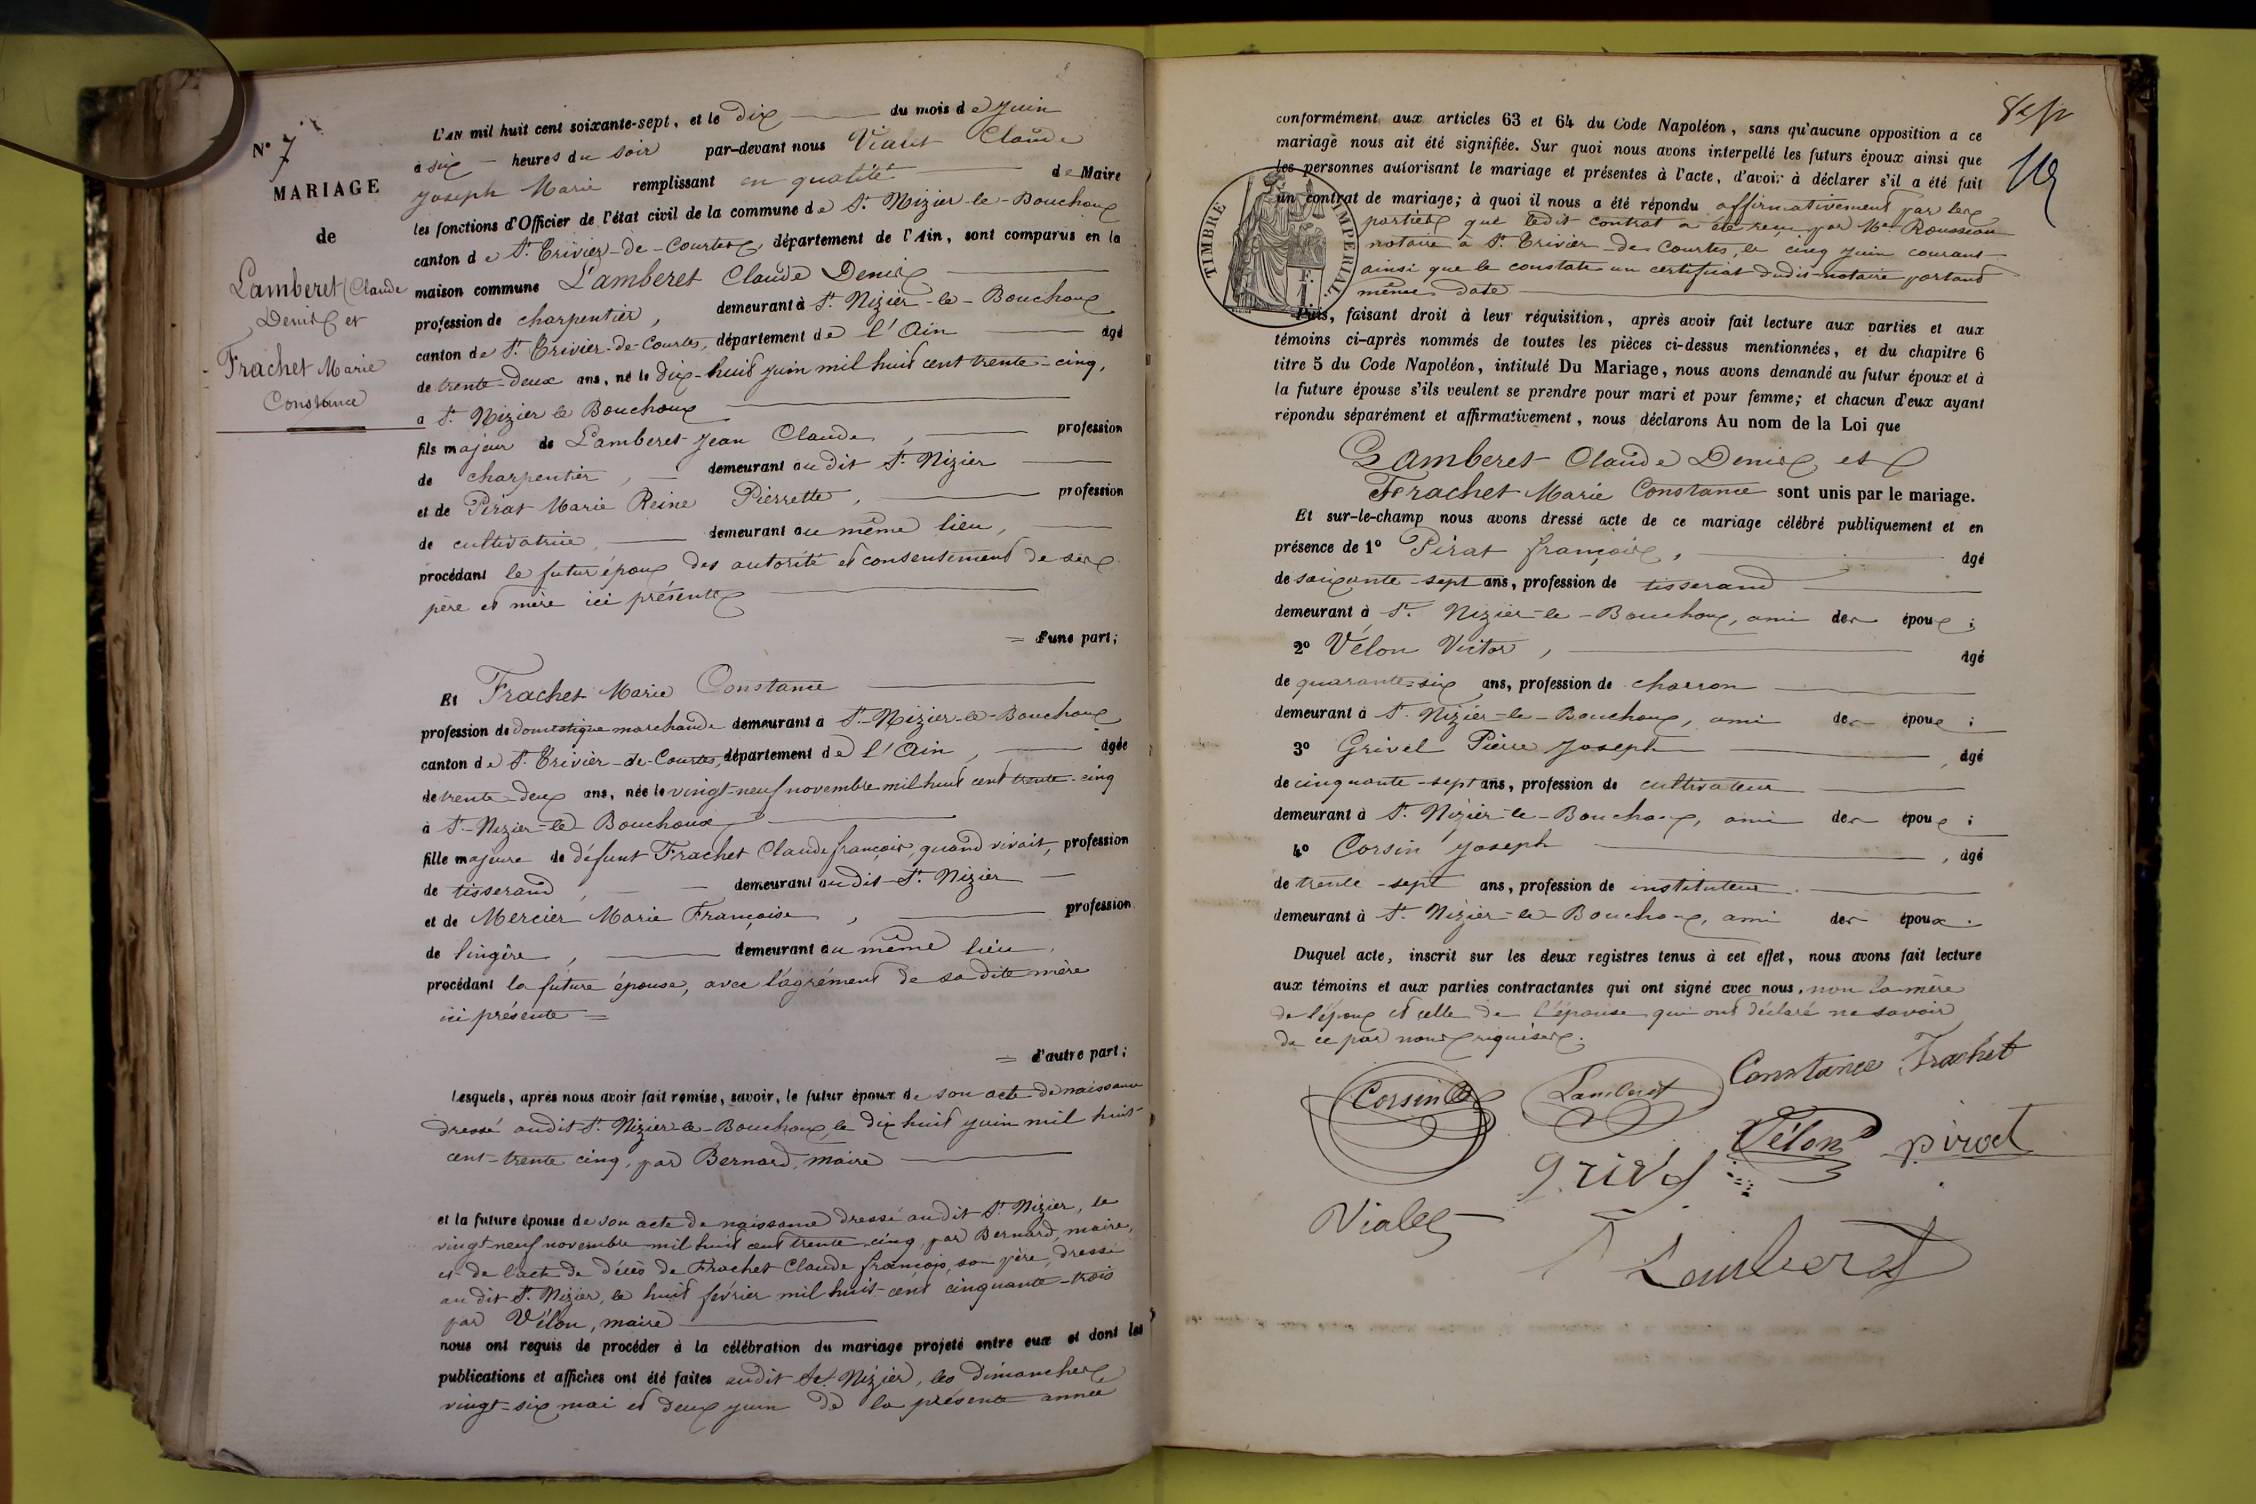 N° 7
MARIAGE
de
Lamberet Claude
Denis et
Frachet Marie
Constance
L'AN mil huit cent soixante-sept, et le dix du mois de juin
à six heures du soir par-devant nous Vialet Claude
Joseph Marie remplissant en qualité de Maire
les fonctions d'Officier de l'état civil de la commune de St. Nizier-le-Bouchoux
canton de St. Trivier-de-Courtes, département de l'Ain, sont comparus en la
maison commune Lamberet Claude Denis
profession de charpentier, demeurant à St. Nizier-le-Bouchoux
canton de St. Trivier-de-Courtes, département de l'Ain âgé
de trente-deux ans, né le dix-huit juin mil huit cent trente-cinq,
à St. Nizier le Bouchoux
fils majeur de Lamberet Jean Claude, profession
de charpentier, demeurant audit St. Nizier
et de Pirat Marie Reine Pierrette, profession
de cultivatrice demeurant au même lieu,
procédant le futur époux des autorité et consentement de ses
père et mère ici présents
= d'une part;
Et Frachet Marie Constance
profession de domestique marchande demeurant à St.-Nizier-le-Bouchoux
canton de St. Trivier-de-Courtes, département de l'Ain, âgée
de trente-deux ans, née le vingt-neuf novembre mil huit cent trente-cinq
à St.-Nizier-le-Bouchoux
fille majeure de défunt Frachet Claude françois, quand vivait, profession
de tisserand, demeurant audit St. Nizier
et de Mercier Marie Françoise, profession
de lingère, demeurant au même lieu,
procédant la future épouse, avec l'agrément de sa dite mère
ici présente =
= d'autre part;
Lesquels, après nous avoir fait remise, savoir, le futur époux de son acte de naissance
dressé audit St. Nizier-le-Bouchoux, le dix huit juin mil huit-
cent-trente cinq, par Bernard, maire
et la future épouse de son acte de naissance dressé audit St. Nizier, le
vingt neuf novembre mil huit cent trente cinq, par Bernard, maire,
et de l'acte de décès de Frachet Claude françois, son père, dressé
au dit St. Nizier, le huit février mil huit-cent cinquante-trois
par Vélon, maire
nous ont requis de procéder à la célébration du mariage projeté entre eux et dont les
publications et affiches ont été faites audit St. Nizier, les dimanches
vingt-six mai et deux juin de la présente année
conformément aux articles 63 et 64 du Code Napoléon, sans qu'aucune opposition à ce
mariage nous ait été signifiée. Sur quoi nous avons interpellé les futurs époux ainsi que
les personnes autorisant le mariage et présentes à l'acte, d'avoir à déclarer s'il a été fait
un contrat de mariage; à quoi il nous a été répondu affirmativement par les
parties que ledit contrat a été reçu par Me. Rousseau
notaire à St. Trivier-de-Courtes, le cinq juin courant
ainsi que le constate un certificat dudit notaire portant
même date
TIMBRE IMPERIAL
Puis, faisant droit à leur réquisition, après avoir fait lecture aux parties et aux
témoins ci-après nommés de toutes les pièces ci-dessus mentionnées, et du chapitre 6
titre 5 du Code Napoléon, intitulé Du Mariage, nous avons demandé au futur époux et à
la future épouse s'ils veulent se prendre pour mari et pour femme; et chacun d'eux ayant
répondu séparément et affirmativement, nous déclarons Au nom de la Loi que
Lamberet Claude Denis et
Frachet Marie Constance sont unis par le mariage.
Et sur-le-champ nous avons dressé acte de ce mariage célébré publiquement et en
présence de 1° Pirat françois, âgé
de soixante-sept ans, profession de tisserand
demeurant à St. Nizier-le-Bouchoux, ami des époux;
2° Vélon Victor, âgé
de quarante-six ans, profession de charron
demeurant à St. Nizier-le-Bouchoux, ami des époux;
3° Grivel Pierre Joseph, âgé
de cinquante-sept ans, profession de cultivateur
demeurant à St. Nizier-le-Bouchoux, ami des époux;
4° Corsin Joseph, âgé
de trente-sept ans, profession de instituteur.
demeurant à St. Nizier-le-Bouchoux, ami des époux.
Duquel acte, inscrit sur les deux registres tenus à cet effet, nous avons fait lecture
aux témoins et aux parties contractantes qui ont signé avec nous, non la mère
de l'époux et celle de l'épouse qui ont déclaré ne savoir
de ce par nous requises.
Corsin Lamberet Constance Frachet
Grivel Vélon pirat
Vialet
Lamberet